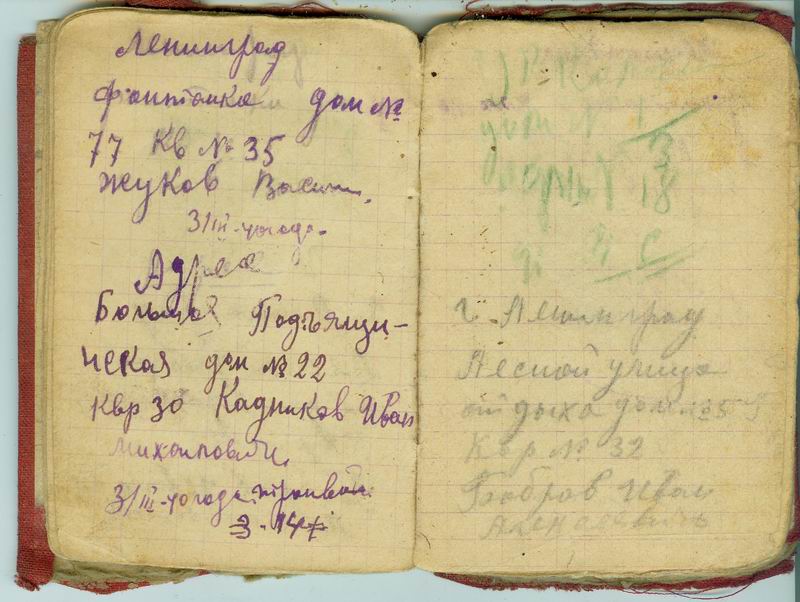 Ленинград
Фонтанка дом №
77 Кв № 35
Жуков Васил.
3/III-40 года.
Адрес
Большая Подъячи-
ческая дом № 22
квр 30 Кадников Иван
Михайлович.
3/III-40 года трамвай
3-14
дом №
13
18
г. Ленинград
Лесной улица
отдыха дом №
Квр № 32
Бобров Иван
Алексеевич